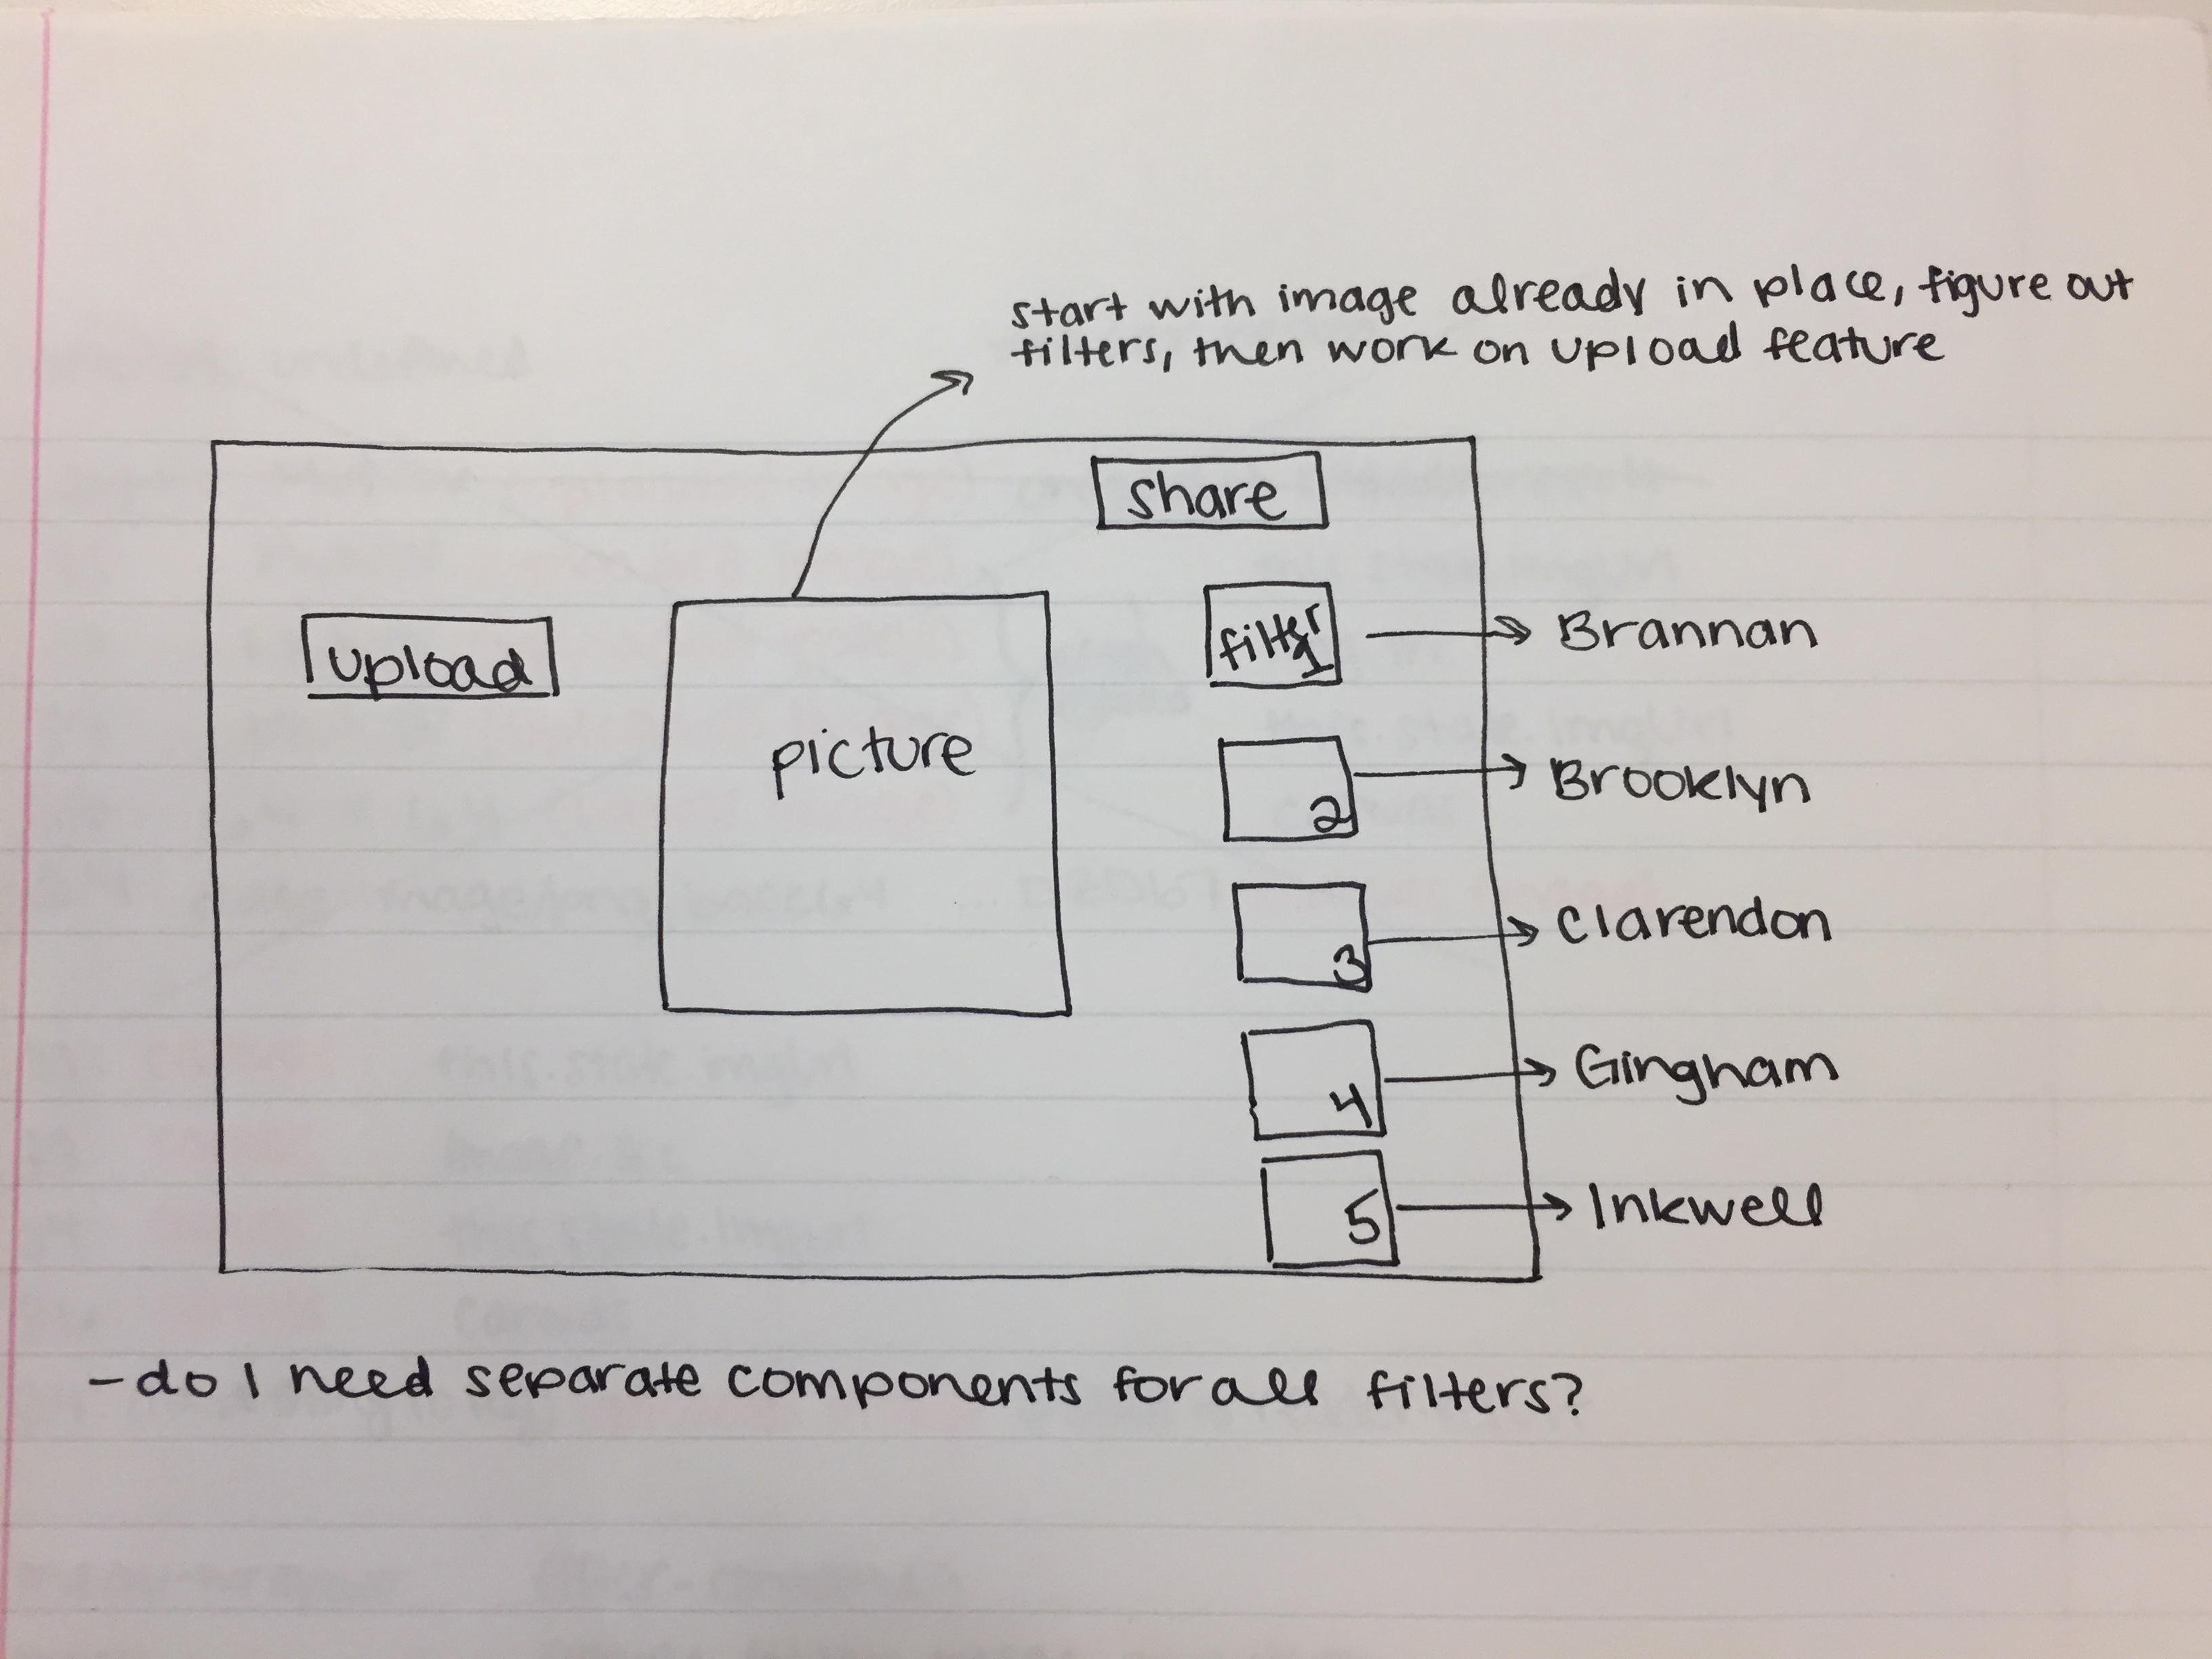 start with image already in place, figure out
filters, then work on upload feature
share
upload
picture
filter
1
Brannan
2
Brooklyn
3
Clarendon
4
Gingham
5
Inkwell
- do I need separate components for all filters?